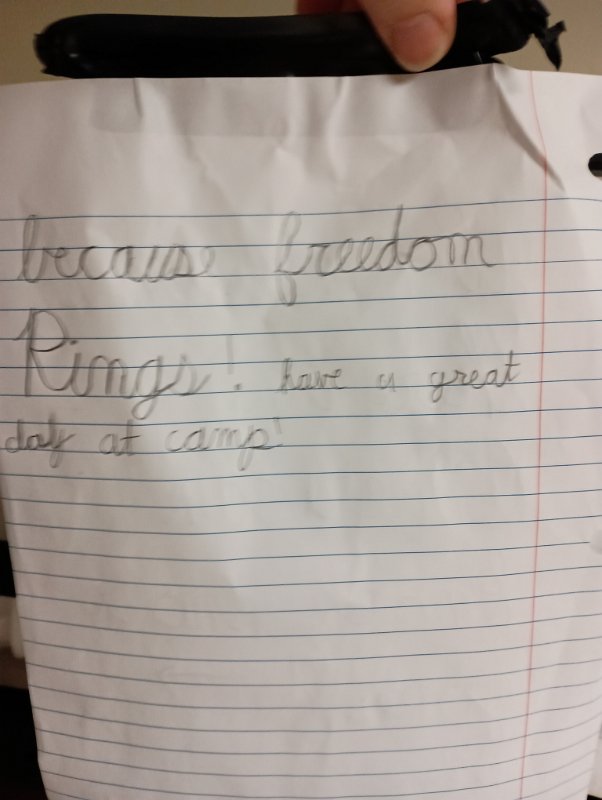 because freedom
Rings! have a great
day at camp!